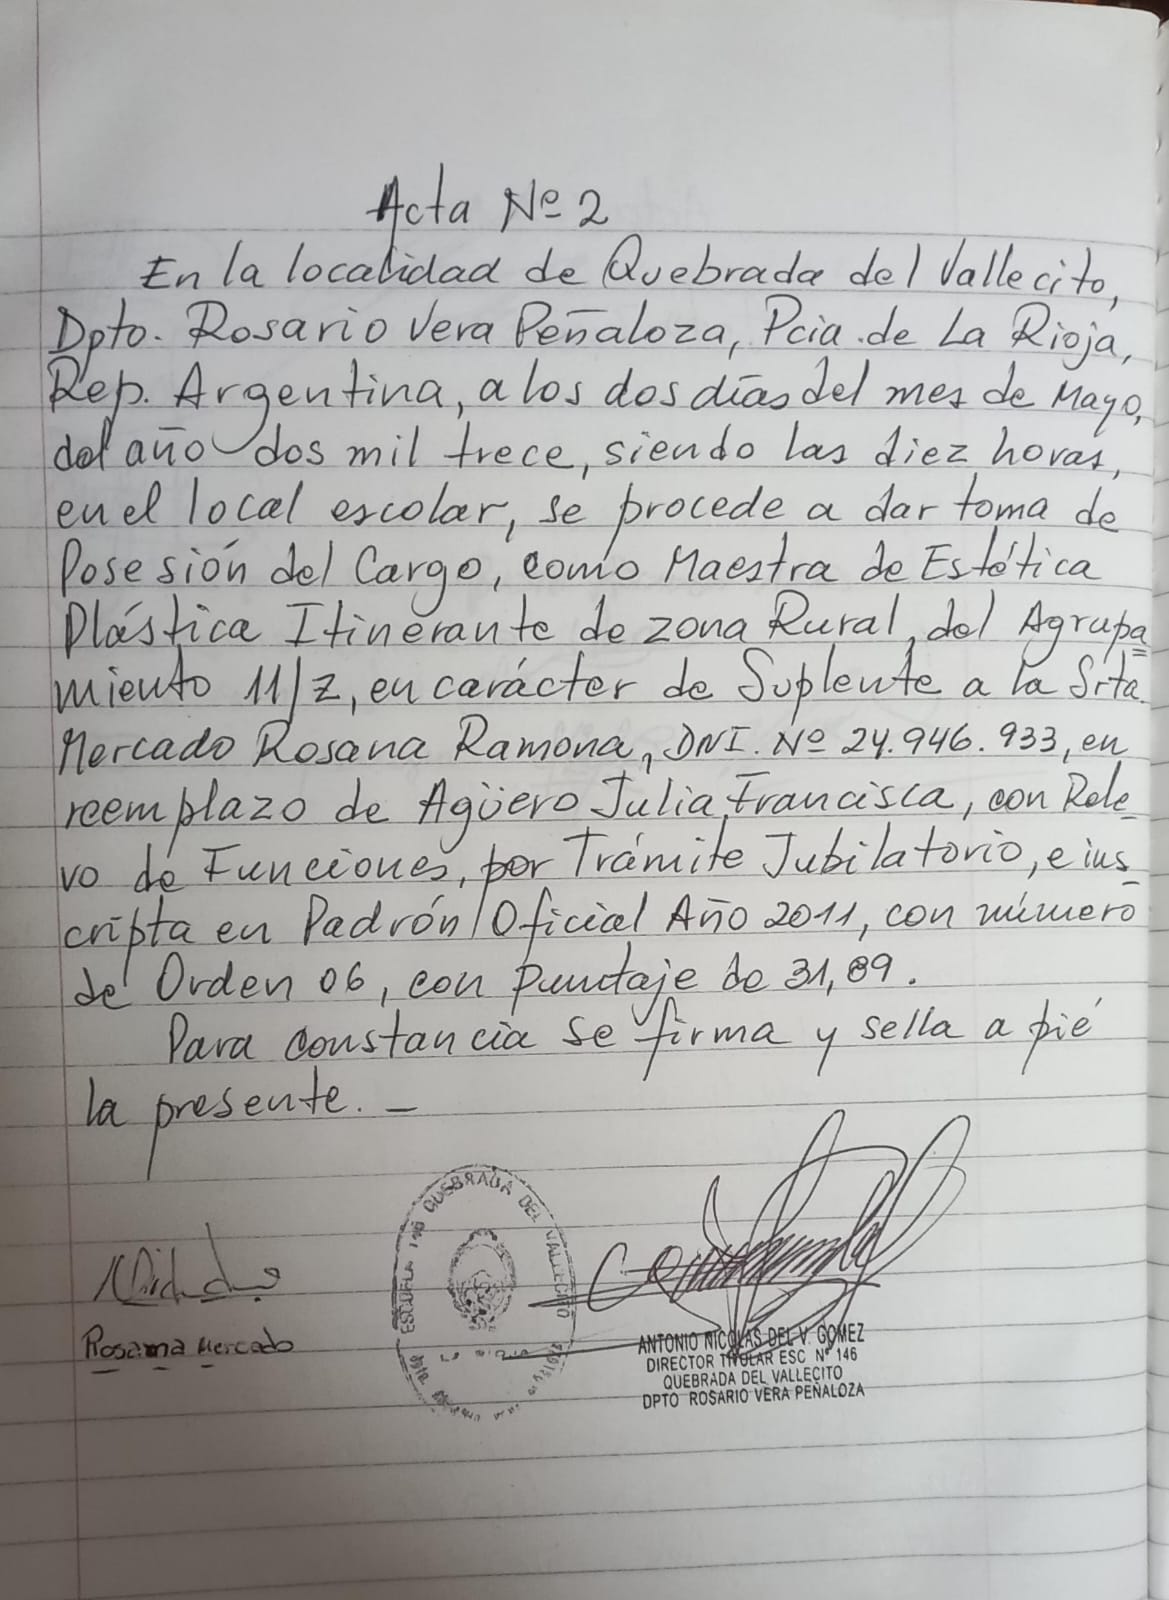 Acta Nº 2
En la localidad de Quebrada del Vallecito,
Dpto. Rosario Vera Peñaloza, Pcia. de La Rioja,
Rep. Argentina, a los dos días del mes de Mayo,
del año dos mil trece, siendo las diez horas,
en el local escolar, se procede a dar toma de
Posesión del Cargo, como Maestra de Estética
Plástica Itinerante de zona Rural, del Agrupa
miento 11/Z, en carácter de Suplente a la Srta.
Mercado Rosana Ramona, DNI. Nº 24.946.933, en
reemplazo de Agüero Julia Francisca, con Rele-
vo de Funciones, por Trámite Jubilatorio, e ins-
cripta en Padrón Oficial Año 2011, con número
de Orden 06, con puntaje de 31,89.
Para constancia se firma y sella a pié
la presente. _
Rosana Mercado
ESCUELA 146 QUEBRADA DEL VALLECITO
LA RIOJA
ANTONIO NICOLAS DEL V. GOMEZ
DIRECTOR TITULAR ESC Nº 146
QUEBRADA DEL VALLECITO
DPTO ROSARIO VERA PEÑALOZA